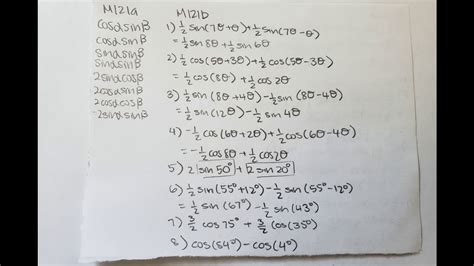 M121a
cosα sinβ
cosα sinβ
sinα sinβ
sinα sinβ
2sinα cosβ
2cosα sinβ
2cosα cosβ
-2sinα sinβ
M121b
1) ½ sin(7θ+θ)+½ sin(7θ-θ)
= ½ sin 8θ + ½ sin 6θ
2) ½ cos(5θ+3θ)+½ cos(5θ-3θ)
= ½ cos(8θ) + ½ cos2θ
3) ½ sin(8θ+4θ)-½ sin(8θ-4θ)
= ½ sin(12θ) - ½ sin 4θ
4) -½ cos(6θ+2θ)+½ cos(6θ-4θ)
= -½ cos8θ + ½ cos2θ
5) 2 sin 50° + 2 sin 20°
6) ½ sin(55°+12°)-½ sin(55°-12°)
= ½ sin(67°) - ½ sin(43°)
7) 3/2 cos75° + 3/2 cos(35°)
8) cos(54°) - cos(4°)